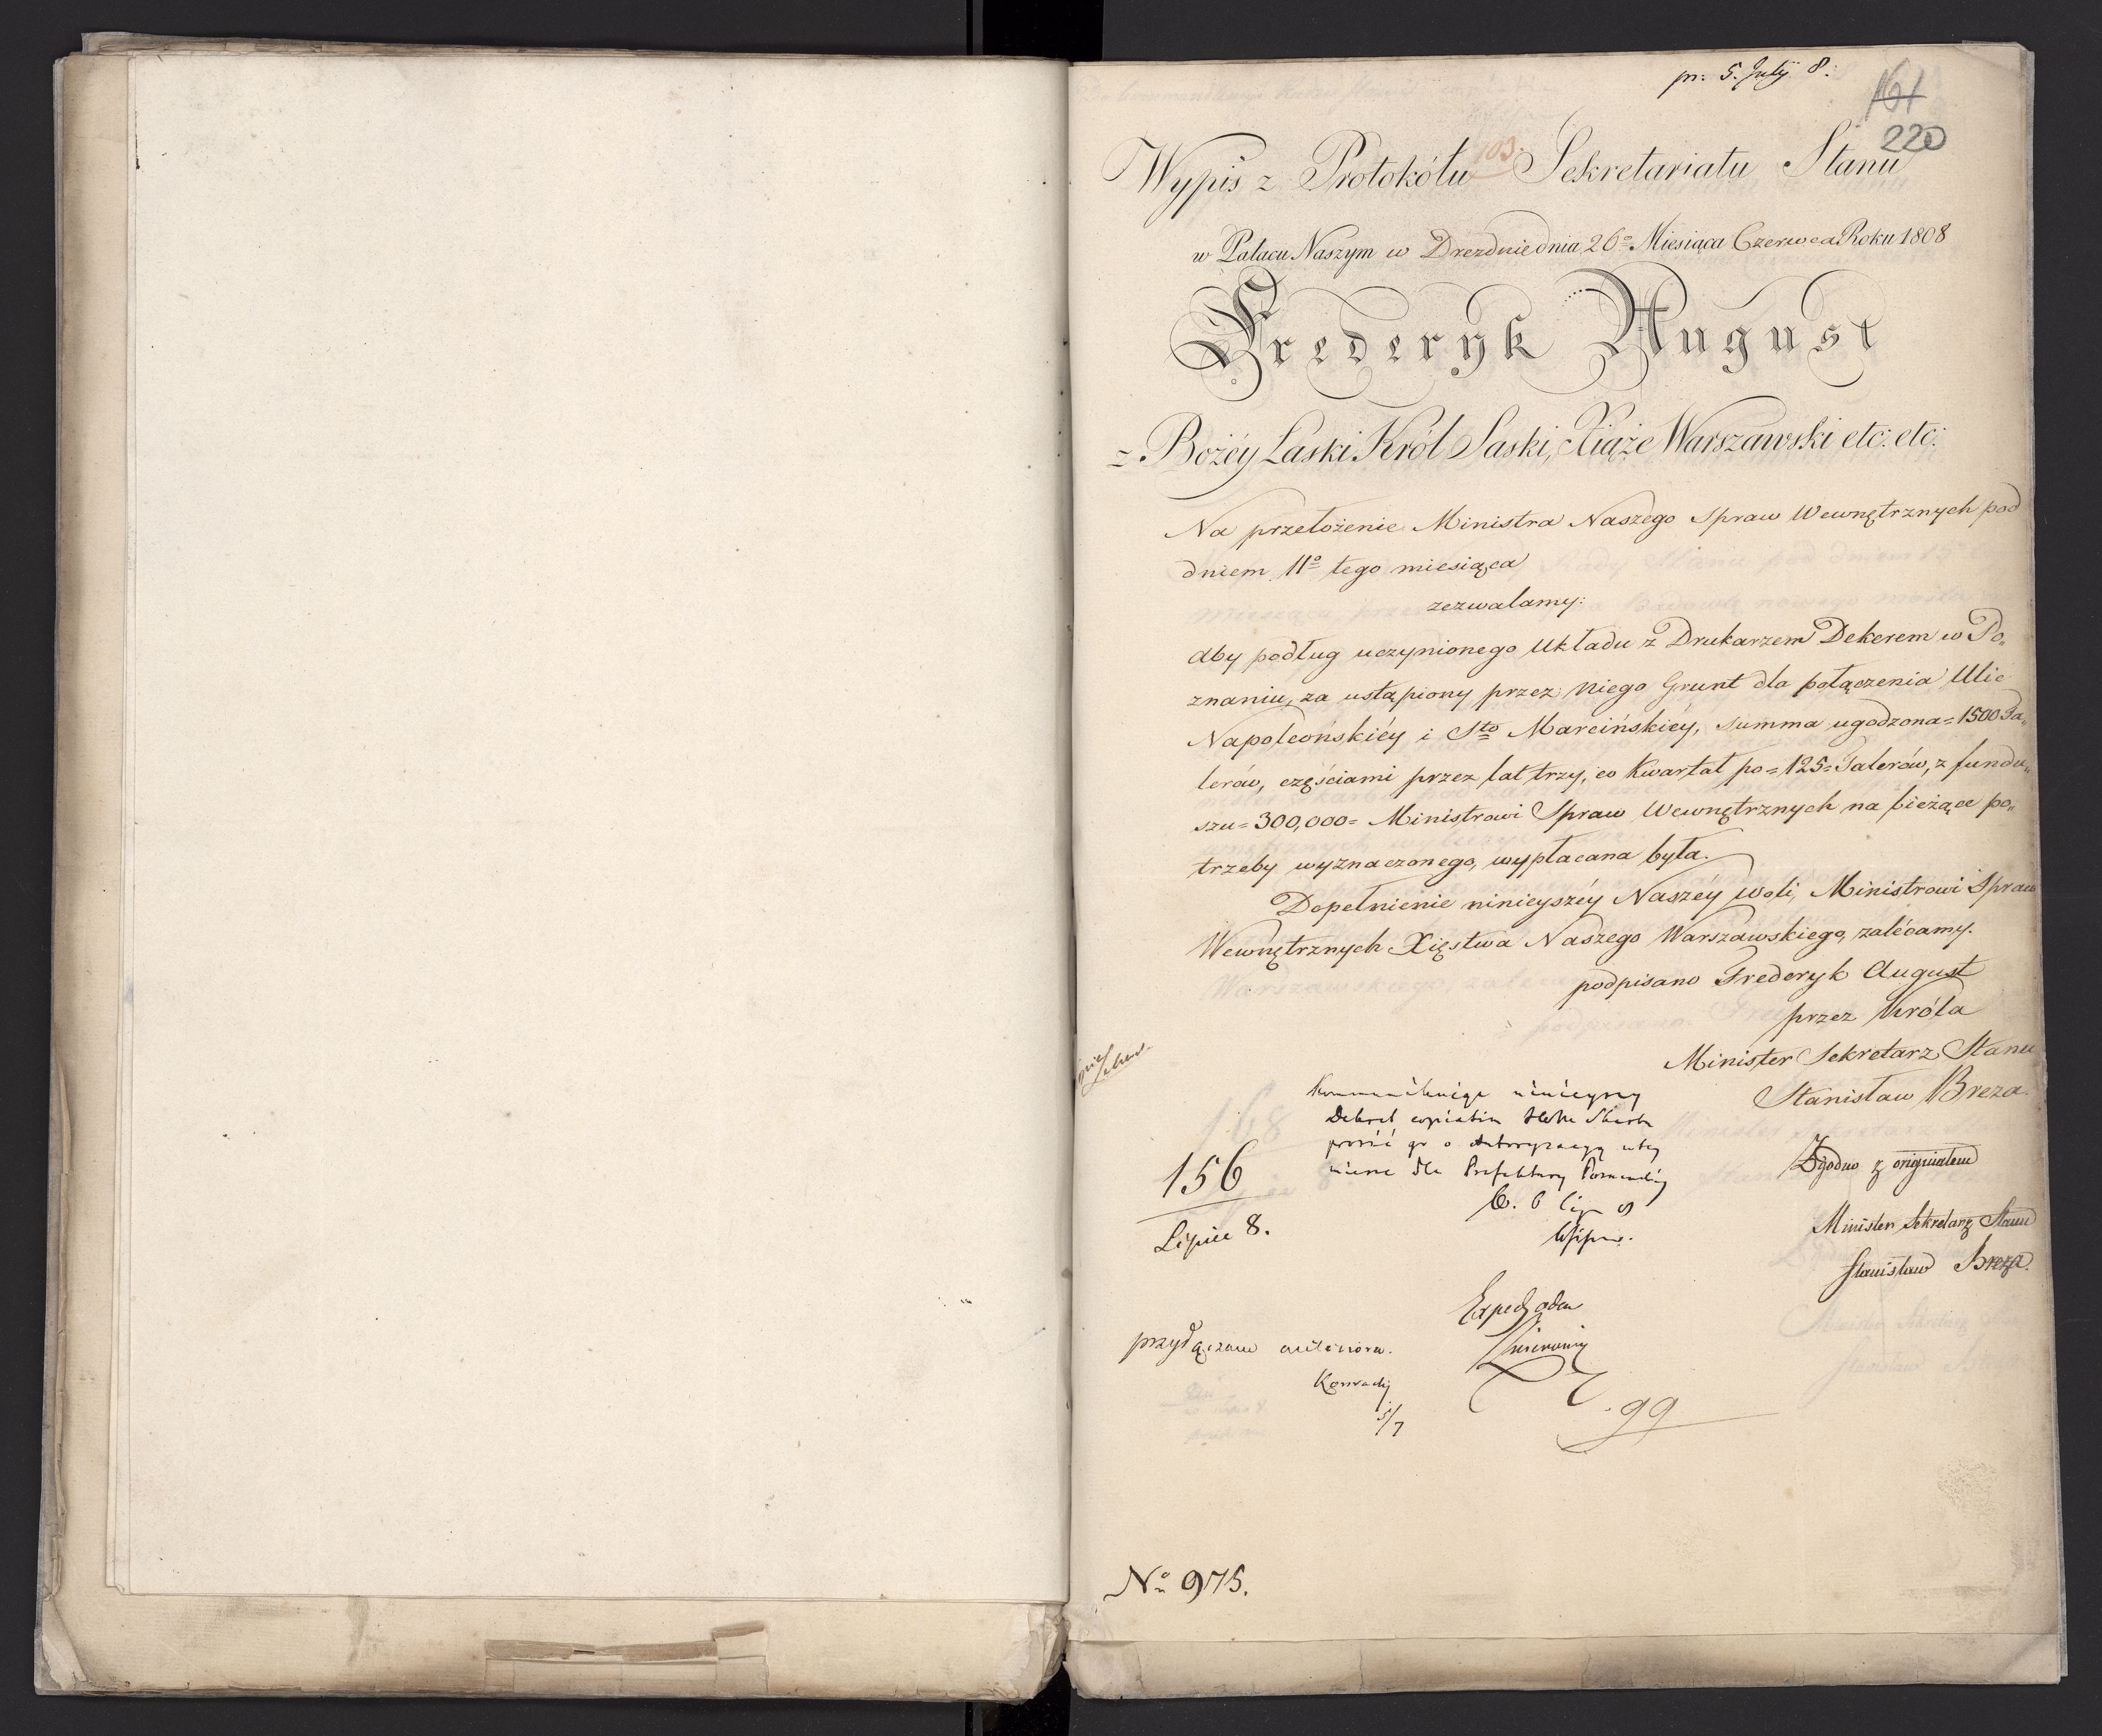 pr: 5. July 8.
161
220
103.
Wypis z Protokółu Sekretariatu Stanu
w Pałacu Naszym w Dreznie dnia 26º Miesiąca Czerwca Roku 1808
Frederyk August
z Bożéy Łaski Król Saski, Xiąże Warszawski etc: etc:
Na przełożenie Ministra Naszego Spraw Wewnętrznych pod
dniem 11º tego miesiąca
zezwalamy:
aby podług uczynionego Układu z Drukarzem Dekerem w Po„
znaniu, za ustąpiony przez niego Grunt dla połączenia Ulic
Napoleońskiéy i Sto Marcińskiéy, summa ugodzona = 1500 Ta„
lerów, częściami przez lat trzy, co Kwartał po = 125 = Talerów, z fundu„
szu = 300,000 = Ministrowi Spraw Wewnętrznych na bieżące po„
trzeby wyznaczonego, wypłacana była.
Dopełnienie ninieyszéy Naszéy woli, Ministrowi Spraw
Wewnętrznych Xięstwa Naszego Warszawskiego, zalécamy.
podpisano Frederyk August
przez Króla
Minister Sekretarz Stanu
Stanisław Breza.
ninieyszy
Dekret
prosić go o
dla Prefektury
156
Lipiec 8.
Zgodno z originałem
Minister Sekretarz Stanu
Stanisław Breza.
przyłączam
5/7
99
Nº 975.